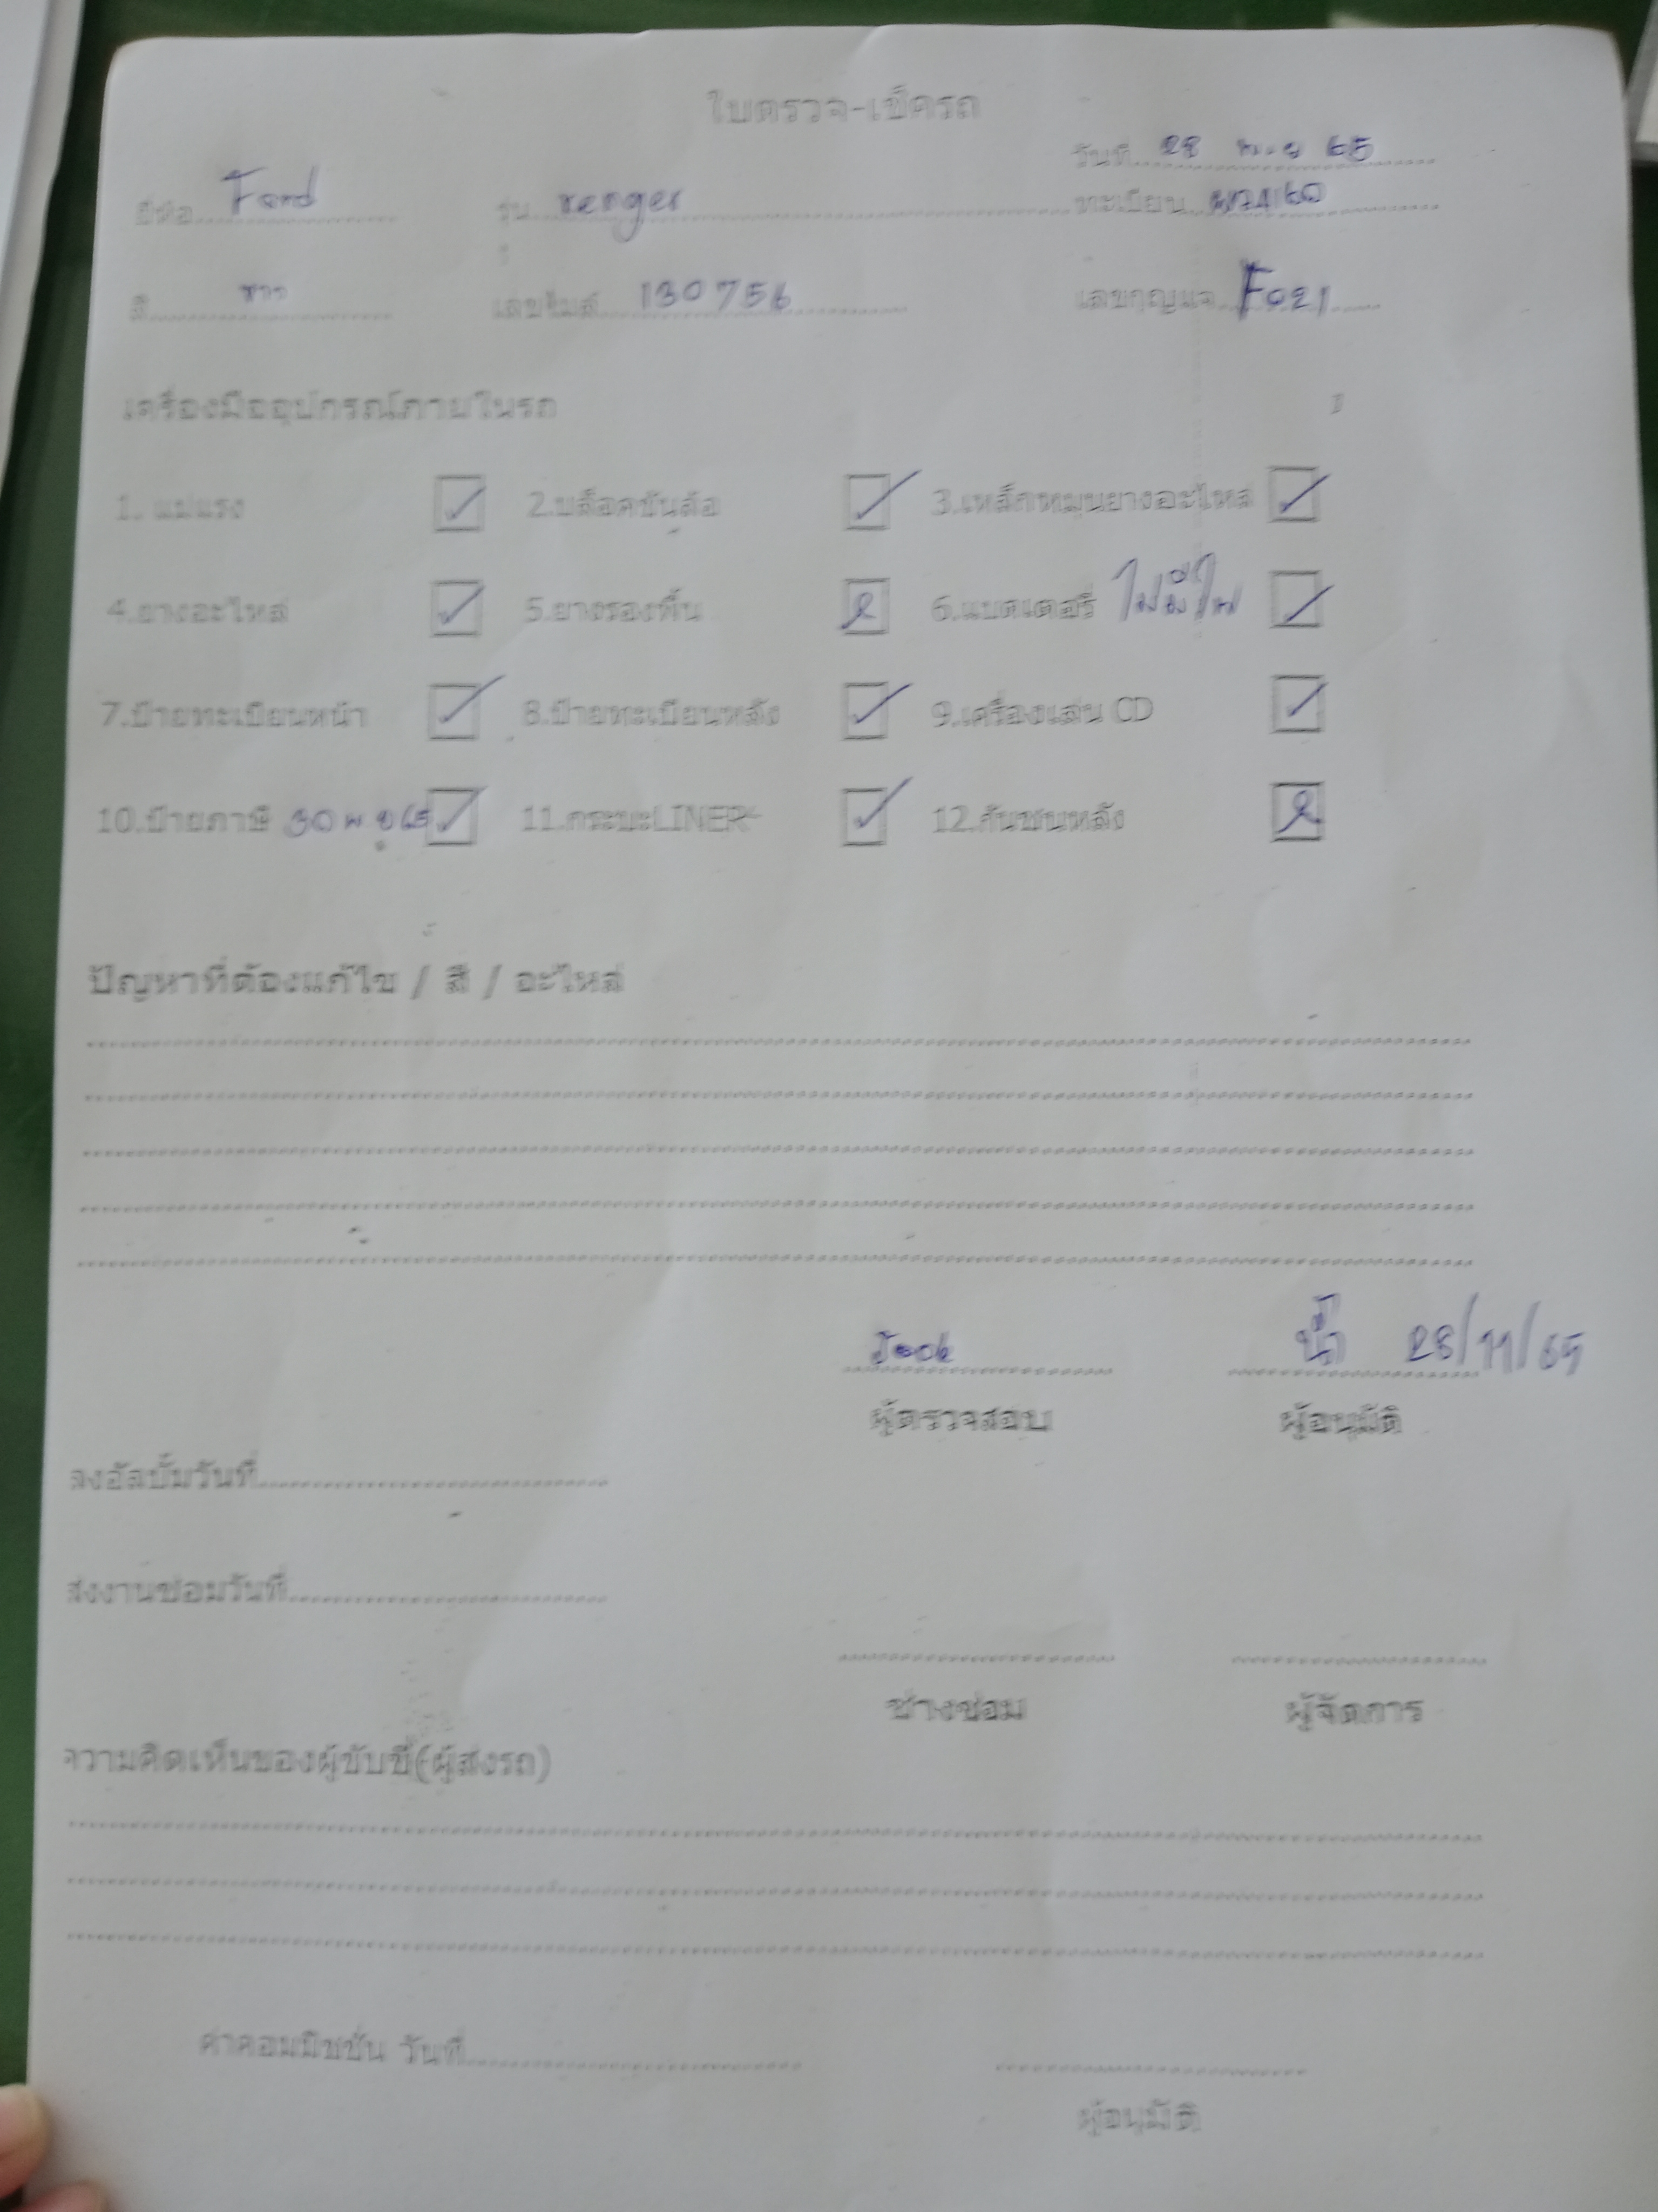 ใบตรวจ-เช็ครถ
วันที่ 28 พ.ย 65
ยี่ห้อ Ford รุ่น renger ทะเบียน
สี ขาว เลขไมล์ 130756 เลขกุญแจ F021
เครื่องมืออุปกรณ์ภายในรถ
1. แม่แรง 2.บล็อคขันล้อ 3.เหล็กหมุนยางอะไหล่
4.ยางอะไหล่ 5.ยางรองพื้น 6.แบตเตอรี่
7.ป้ายทะเบียนหน้า 8.ป้ายทะเบียนหลัง 9.เครื่องเล่น CD
10.ป้ายภาษี 30 พ.ย 65 11.กระบะLINER 12.กันชนหลัง
ปัญหาที่ต้องแก้ไข / สี / อะไหล่
28/11/65
ผู้ตรวจสอบ ผู้อนุมัติ
ลงอัลบั้มวันที่
ส่งงานซ่อมวันที่
ช่างซ่อม ผู้จัดการ
ความคิดเห็นของผู้ขับขี่(ผู้ส่งรถ)
ค่าคอมมิชชั่น วันที่
ผู้อนุมัติ